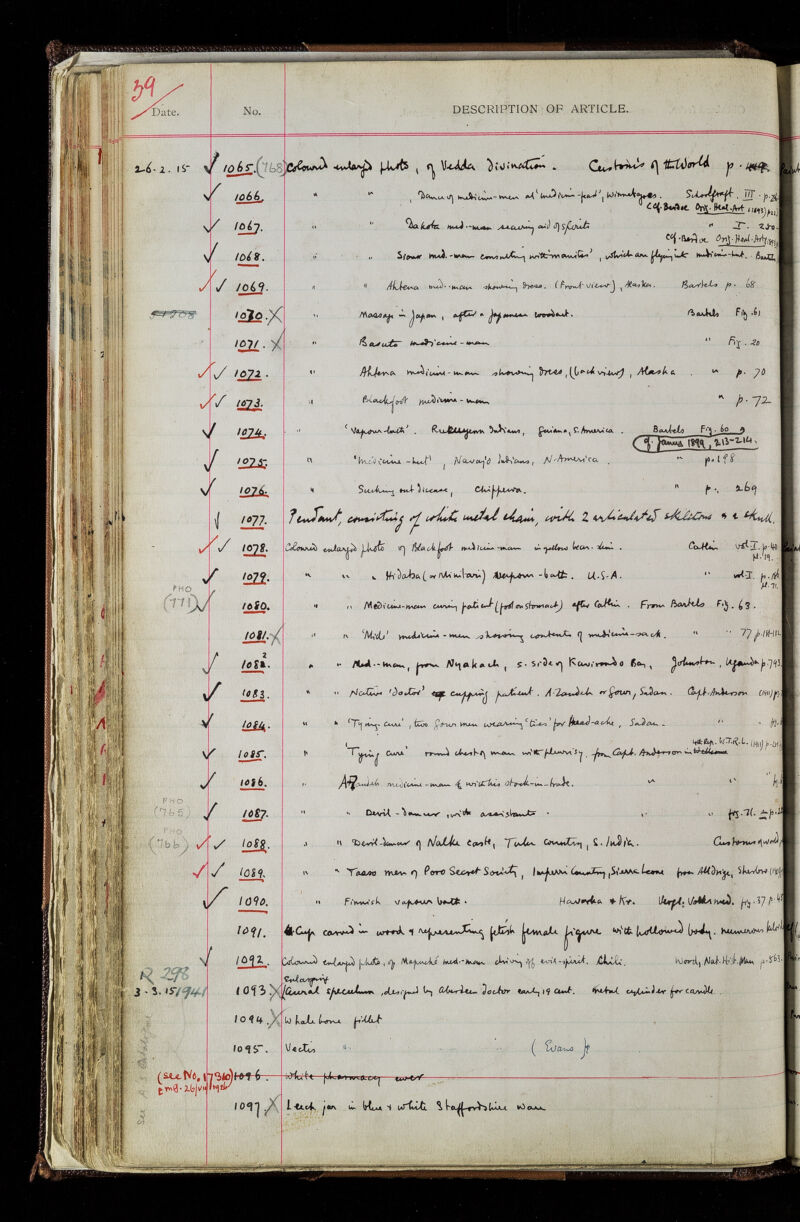 39
Date. No. DESCRIPTION OF ARTICLE.
26.2.15 1065. (768) Coloured enlarged photo, of Vedda Divination. Customs of the World p.
1066. " " , Dance of medicine-men at 'medicine-feast', Winnebagoes. Schoolcraft. III p.
(Cf. Bordoe Orig. Heal. Art (1893)
1067. " " Dakota med.-man seeking aid of spirits " I. 250.
Cf. Bordoe Orig. Heal. Art
1068. " " Sioux med.-man consulting with 'manitos', which are flying into medicine-hut.
1069. " " Ahtena med.-man showing dress. (Front view), Alaska. Bartels p. 68
1070. " Massage in Japan, after a Japanese woodcut. Bartels Fig. 61
1071. " Basuto medicine-man " Fig. 20
1072. " Ahtena medicine-man showing dress, (back view), Alaska. " p. 70
1073. " Blackfoot medicine-man " p. 72
1074. " 'Vapour-bath'. Indians, Guiana, S. America. Bartels Fig. 60
(cf. Janus 1899, 213-214.
1075. " 'Medicine-hut', Navajo Indians, N. America. " p. 198
1076. " Sucking out disease, Chippewa. " p. 269
1077. Pendant, consisting of white metal chain, with 2 articulated skeletons & a skull.
1078. Coloured enlarged photo of Blackfoot medicine-man in yellow bear-skin. Catlin vol I. p. 40
pl. 19.
1079. " " " Hidatsa (or Minitari) vapour-bath. U.S.A. " vol I.
pl. 71.
FHO
(771) 1080. " " Medicine-man curing patient (foot on stomach) after Catlin. From Bartels Fig. 63.
1081. " " 'Mide' medicine-men showing contents of medicine-sack. " " 77
1082. " " Med.-man, from Nyakach, S. side of Kavirondo Bay, Johnston, Uganda p. 793
1083. " " Native 'doctor' cupping patient. A-Zandeh or Gour, Sudan. Capt. Anderson
1084. " " 'Tying cure', two Gour men wearing 'ties' for head-ache, Sudan. " "
4th Rep. W.T.R.L. (1911)
1085. " 'Tying cure' round chest of man with pleurisy. from Capt. Anderson in Wellcome
1086. " Azandeh medicine-man & with his stock-in-trade. " "
FHO
(765) 1087. " " Devil-dancer, with assistants. " "
FHO
(766) 1088. " " Devil-dancer of Nalke caste, Tulu Country, S. India. Customs of World,
1089. " " Tasso men of Poro Secret Society, Imperri Country, Sierra Leone from Alldridge, Sherbro
1090. " Finnish vapour bath. Havorka & Kr. Vergl. Volksmed. fig. 37
1091. Cup carved in wood & representing fetish female figure with hollowed body. numerous
1092. Coloured enlarged photo, of Mapuché med.-man driving off evil-spirit. Chili. Wood, Nat. Hist. Man p. 563.
R 298
3.3.15/944 1093. Aural speculum, designed by Aberdeen doctor early 19 cent. metal cylinder for candle.
1094. Whale bone fillet
1095. Vectis " (Evans)
(see No. 17360) 1096. White pharmacy ewer
1097. Leech jar in blue & white Staffordshire ware